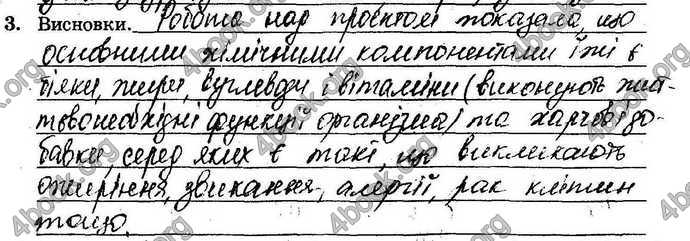 3. Висновки. Робота над проєктом показала, що
основними хімічними компонентами їжі є
білки, жири, вуглеводи і вітаміни (виконують жит-
тєвонеобхідні функції організма) та харчові до-
бавки, серед яких є такі, що викликають
ожиріння, звикання, алергії, рак клітин
тощо.
4book.org